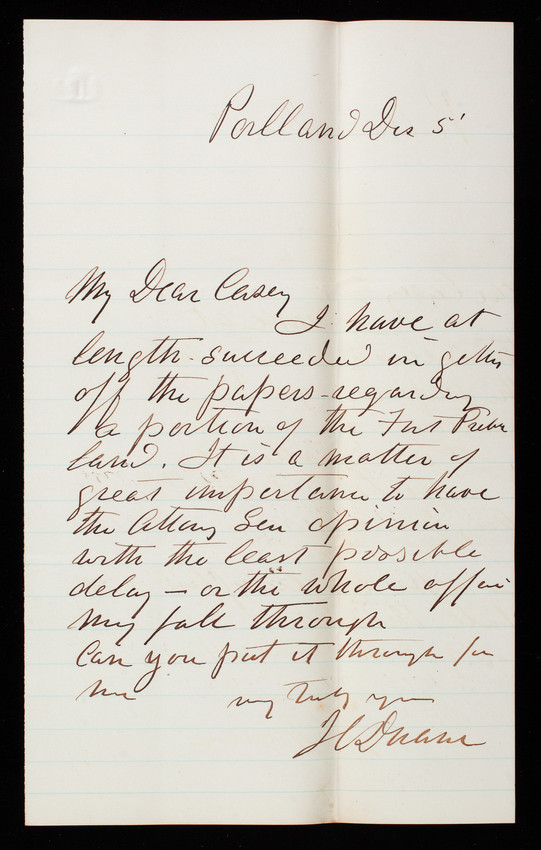 Portland Dec 5'
My Dear Casey
I have at
length succeeded in getting
off the papers regarding
a portion of the Fort Preble
land. It is a matter of
great importance to have
the Attorny Gen opinion
with the least possible
delay — or the whole affair
may fall through
Can you put it through for
me very truly yours
J C Duane